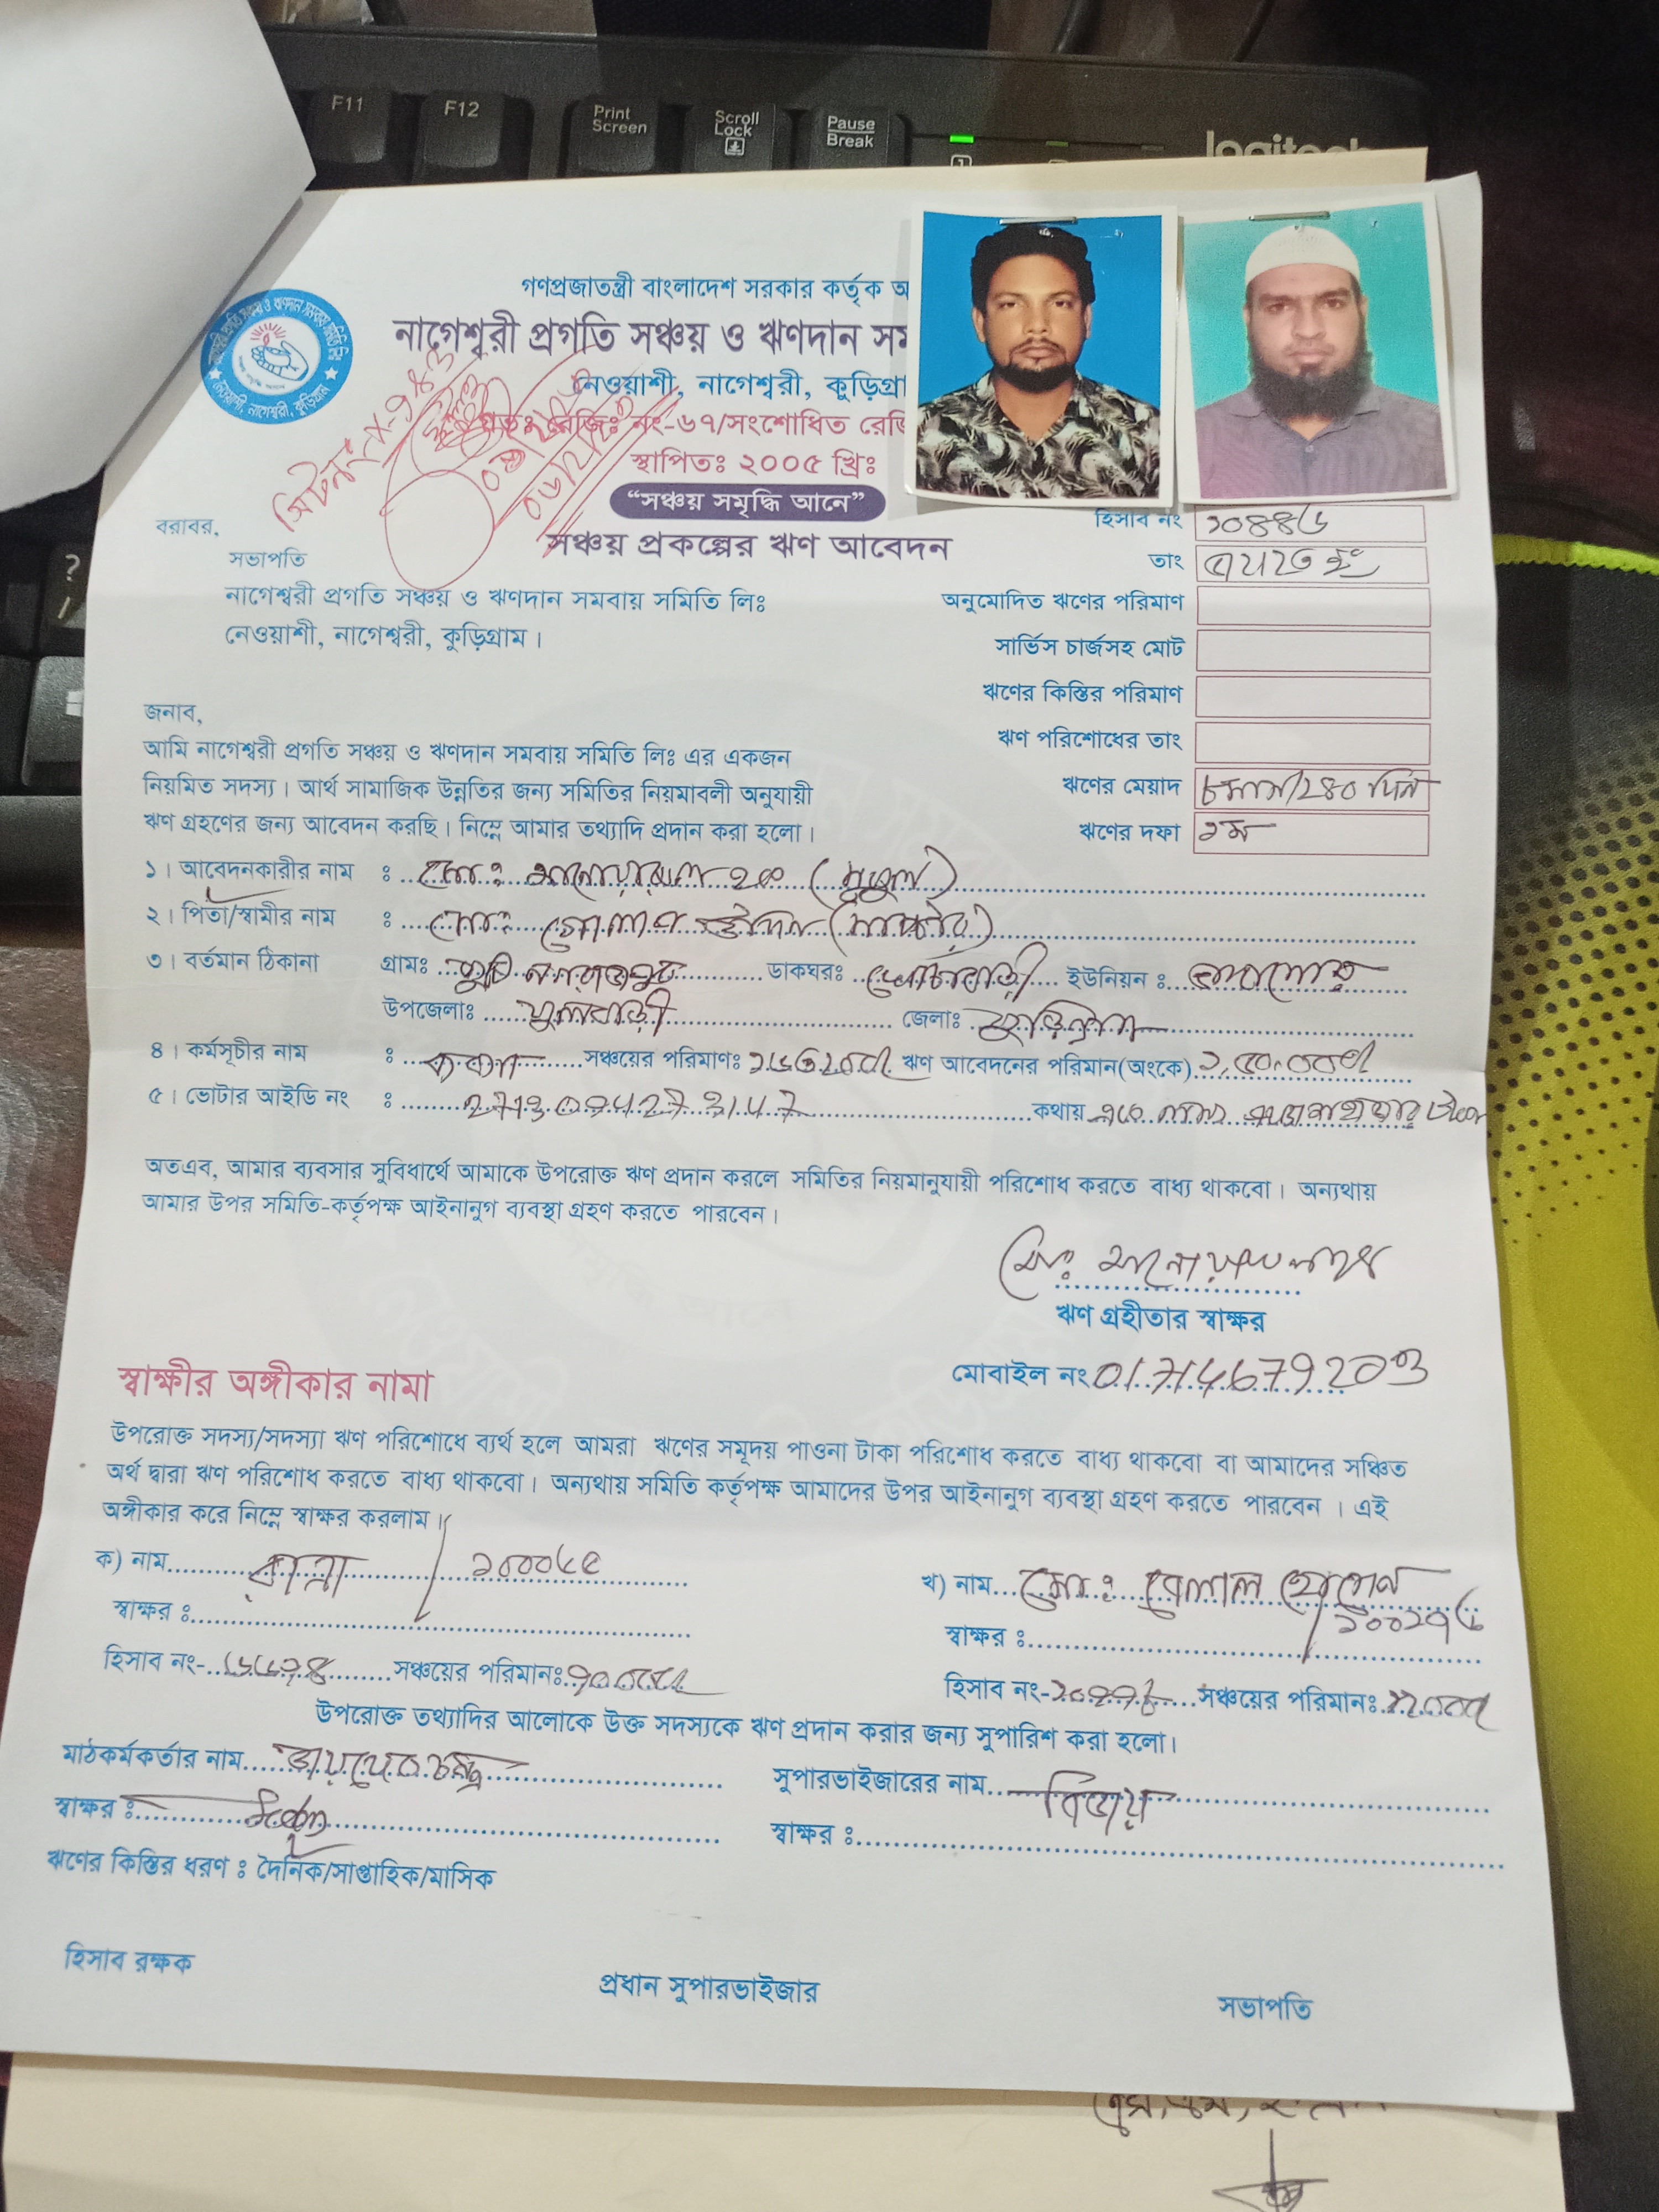 F11 F12 Print Screen Scroll Lock Pause Break
logitech
গণপ্রজাতন্ত্রী বাংলাদেশ সরকার কর্তৃক অ
নাগেশ্বরী প্রগতি সঞ্চয় ও ঋণদান সম
নেওয়াশী, নাগেশ্বরী, কুড়িগ্রা
রেজিঃ নং-৬৭/সংশোধিত রেজি
স্থাপিতঃ ২০০৫ খ্রিঃ
“সঞ্চয় সমৃদ্ধি আনে”
সঞ্চয় প্রকল্পের ঋণ আবেদন
হিসাব নং ১০৪৪৬
তাং
বরাবর,
সভাপতি
নাগেশ্বরী প্রগতি সঞ্চয় ও ঋণদান সমবায় সমিতি লিঃ
নেওয়াশী, নাগেশ্বরী, কুড়িগ্রাম।
অনুমোদিত ঋণের পরিমাণ
সার্ভিস চার্জসহ মোট
ঋণের কিস্তির পরিমাণ
ঋণ পরিশোধের তাং
ঋণের মেয়াদ ৮মাস/২৪০ দিন
ঋণের দফা ১ম
জনাব,
আমি নাগেশ্বরী প্রগতি সঞ্চয় ও ঋণদান সমবায় সমিতি লিঃ এর একজন
নিয়মিত সদস্য। আর্থ সামাজিক উন্নতির জন্য সমিতির নিয়মাবলী অনুযায়ী
ঋণ গ্রহণের জন্য আবেদন করছি। নিম্নে আমার তথ্যাদি প্রদান করা হলো।
১। আবেদনকারীর নাম : মোঃ মনোয়ারুল হক (মুকুল)
২। পিতা/স্বামীর নাম : মোঃ গোলাপ উদ্দিন (মাষ্টার)
৩। বর্তমান ঠিকানা গ্রামঃ ডাকঘরঃ ইউনিয়ন :
উপজেলাঃ ফুলবাড়ী জেলাঃ কুড়িগ্রাম
৪। কর্মসূচীর নাম : সঞ্চয়ের পরিমাণঃ ঋণ আবেদনের পরিমান(অংকে) ১,৫০,০০০/
৫। ভোটার আইডি নং : কথায় এক লক্ষ পঞ্চাশ হাজার টাকা
অতএব, আমার ব্যবসার সুবিধার্থে আমাকে উপরোক্ত ঋণ প্রদান করলে সমিতির নিয়মানুযায়ী পরিশোধ করতে বাধ্য থাকবো। অন্যথায়
আমার উপর সমিতি-কর্তৃপক্ষ আইনানুগ ব্যবস্থা গ্রহণ করতে পারবেন।
মোঃ মনোয়ারুল হক
ঋণ গ্রহীতার স্বাক্ষর
মোবাইল নং 01714679203
স্বাক্ষীর অঙ্গীকার নামা
উপরোক্ত সদস্য/সদস্যা ঋণ পরিশোধে ব্যর্থ হলে আমরা ঋণের সমূদয় পাওনা টাকা পরিশোধ করতে বাধ্য থাকবো বা আমাদের সঞ্চিত
অর্থ দ্বারা ঋণ পরিশোধ করতে বাধ্য থাকবো। অন্যথায় সমিতি কর্তৃপক্ষ আমাদের উপর আইনানুগ ব্যবস্থা গ্রহণ করতে পারবেন । এই
অঙ্গীকার করে নিম্নে স্বাক্ষর করলাম।
ক) নাম
স্বাক্ষর :
হিসাব নং- সঞ্চয়ের পরিমানঃ
খ) নাম মোঃ বেলাল হোসেন
স্বাক্ষর :
হিসাব নং- সঞ্চয়ের পরিমানঃ
উপরোক্ত তথ্যাদির আলোকে উক্ত সদস্যকে ঋণ প্রদান করার জন্য সুপারিশ করা হলো।
মাঠকর্মকর্তার নাম চন্দ্র
সুপারভাইজারের নাম বিজয়
স্বাক্ষর :
স্বাক্ষর :
ঋণের কিস্তির ধরণ : দৈনিক/সাপ্তাহিক/মাসিক
হিসাব রক্ষক
প্রধান সুপারভাইজার
সভাপতি